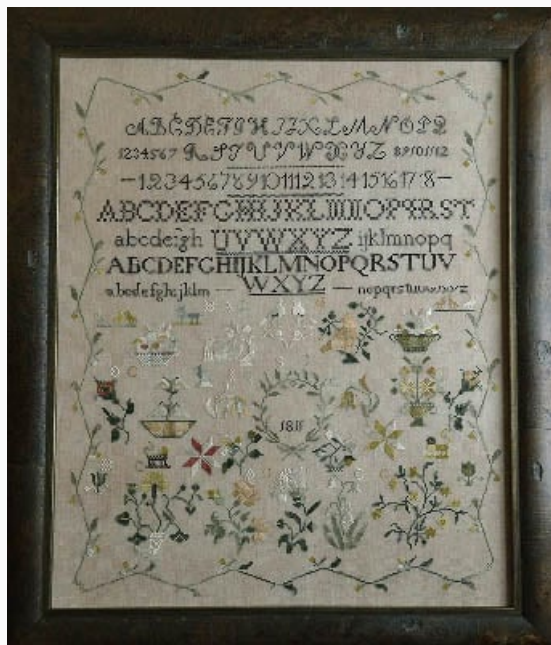 ABCDEFGHIJKLMNOPQ
1234567 RSTUVWXYZ 89101112
123456789101112131415161718
ABCDEFGHIJKLMNOPQRST
abcdefgh UVWXYZ ijklmnopq
ABCDEFGHIJKLMNOPQRSTUV
abcdefghijklm — WXYZ — nopqrstuvwxyz